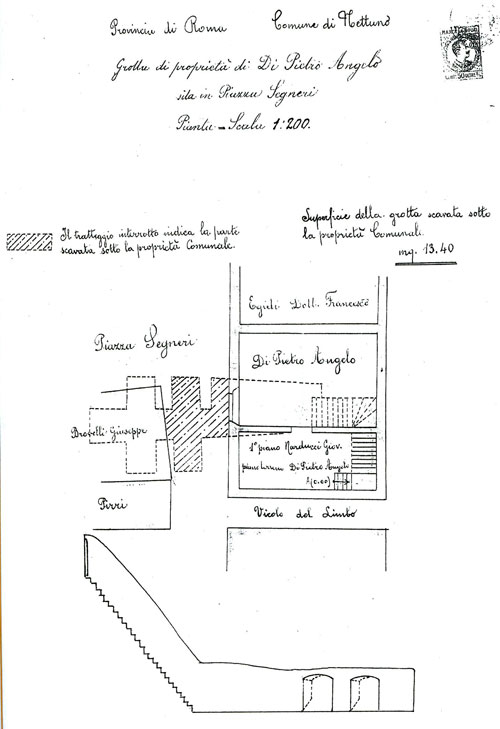 Provincia di Roma Comune di Nettuno
Grotta di proprietà di Di Pietro Angelo
sita in Piazza Segneri
Pianta = Scala 1:200.
Il tratteggio interrotto indica la parte
scavata sotto la proprietà Comunale.
Superficie della grotta scavata sotto
la proprietà Comunale.
mq. 13.40
Egidi Dott. Francesco
Piazza Segneri
Di Pietro Angelo
Brovelli Giuseppe
1° piano Narducci Giov.
piano terreno Di Pietro Angelo
A(0.00)
Pirri
Vicolo del Limbo